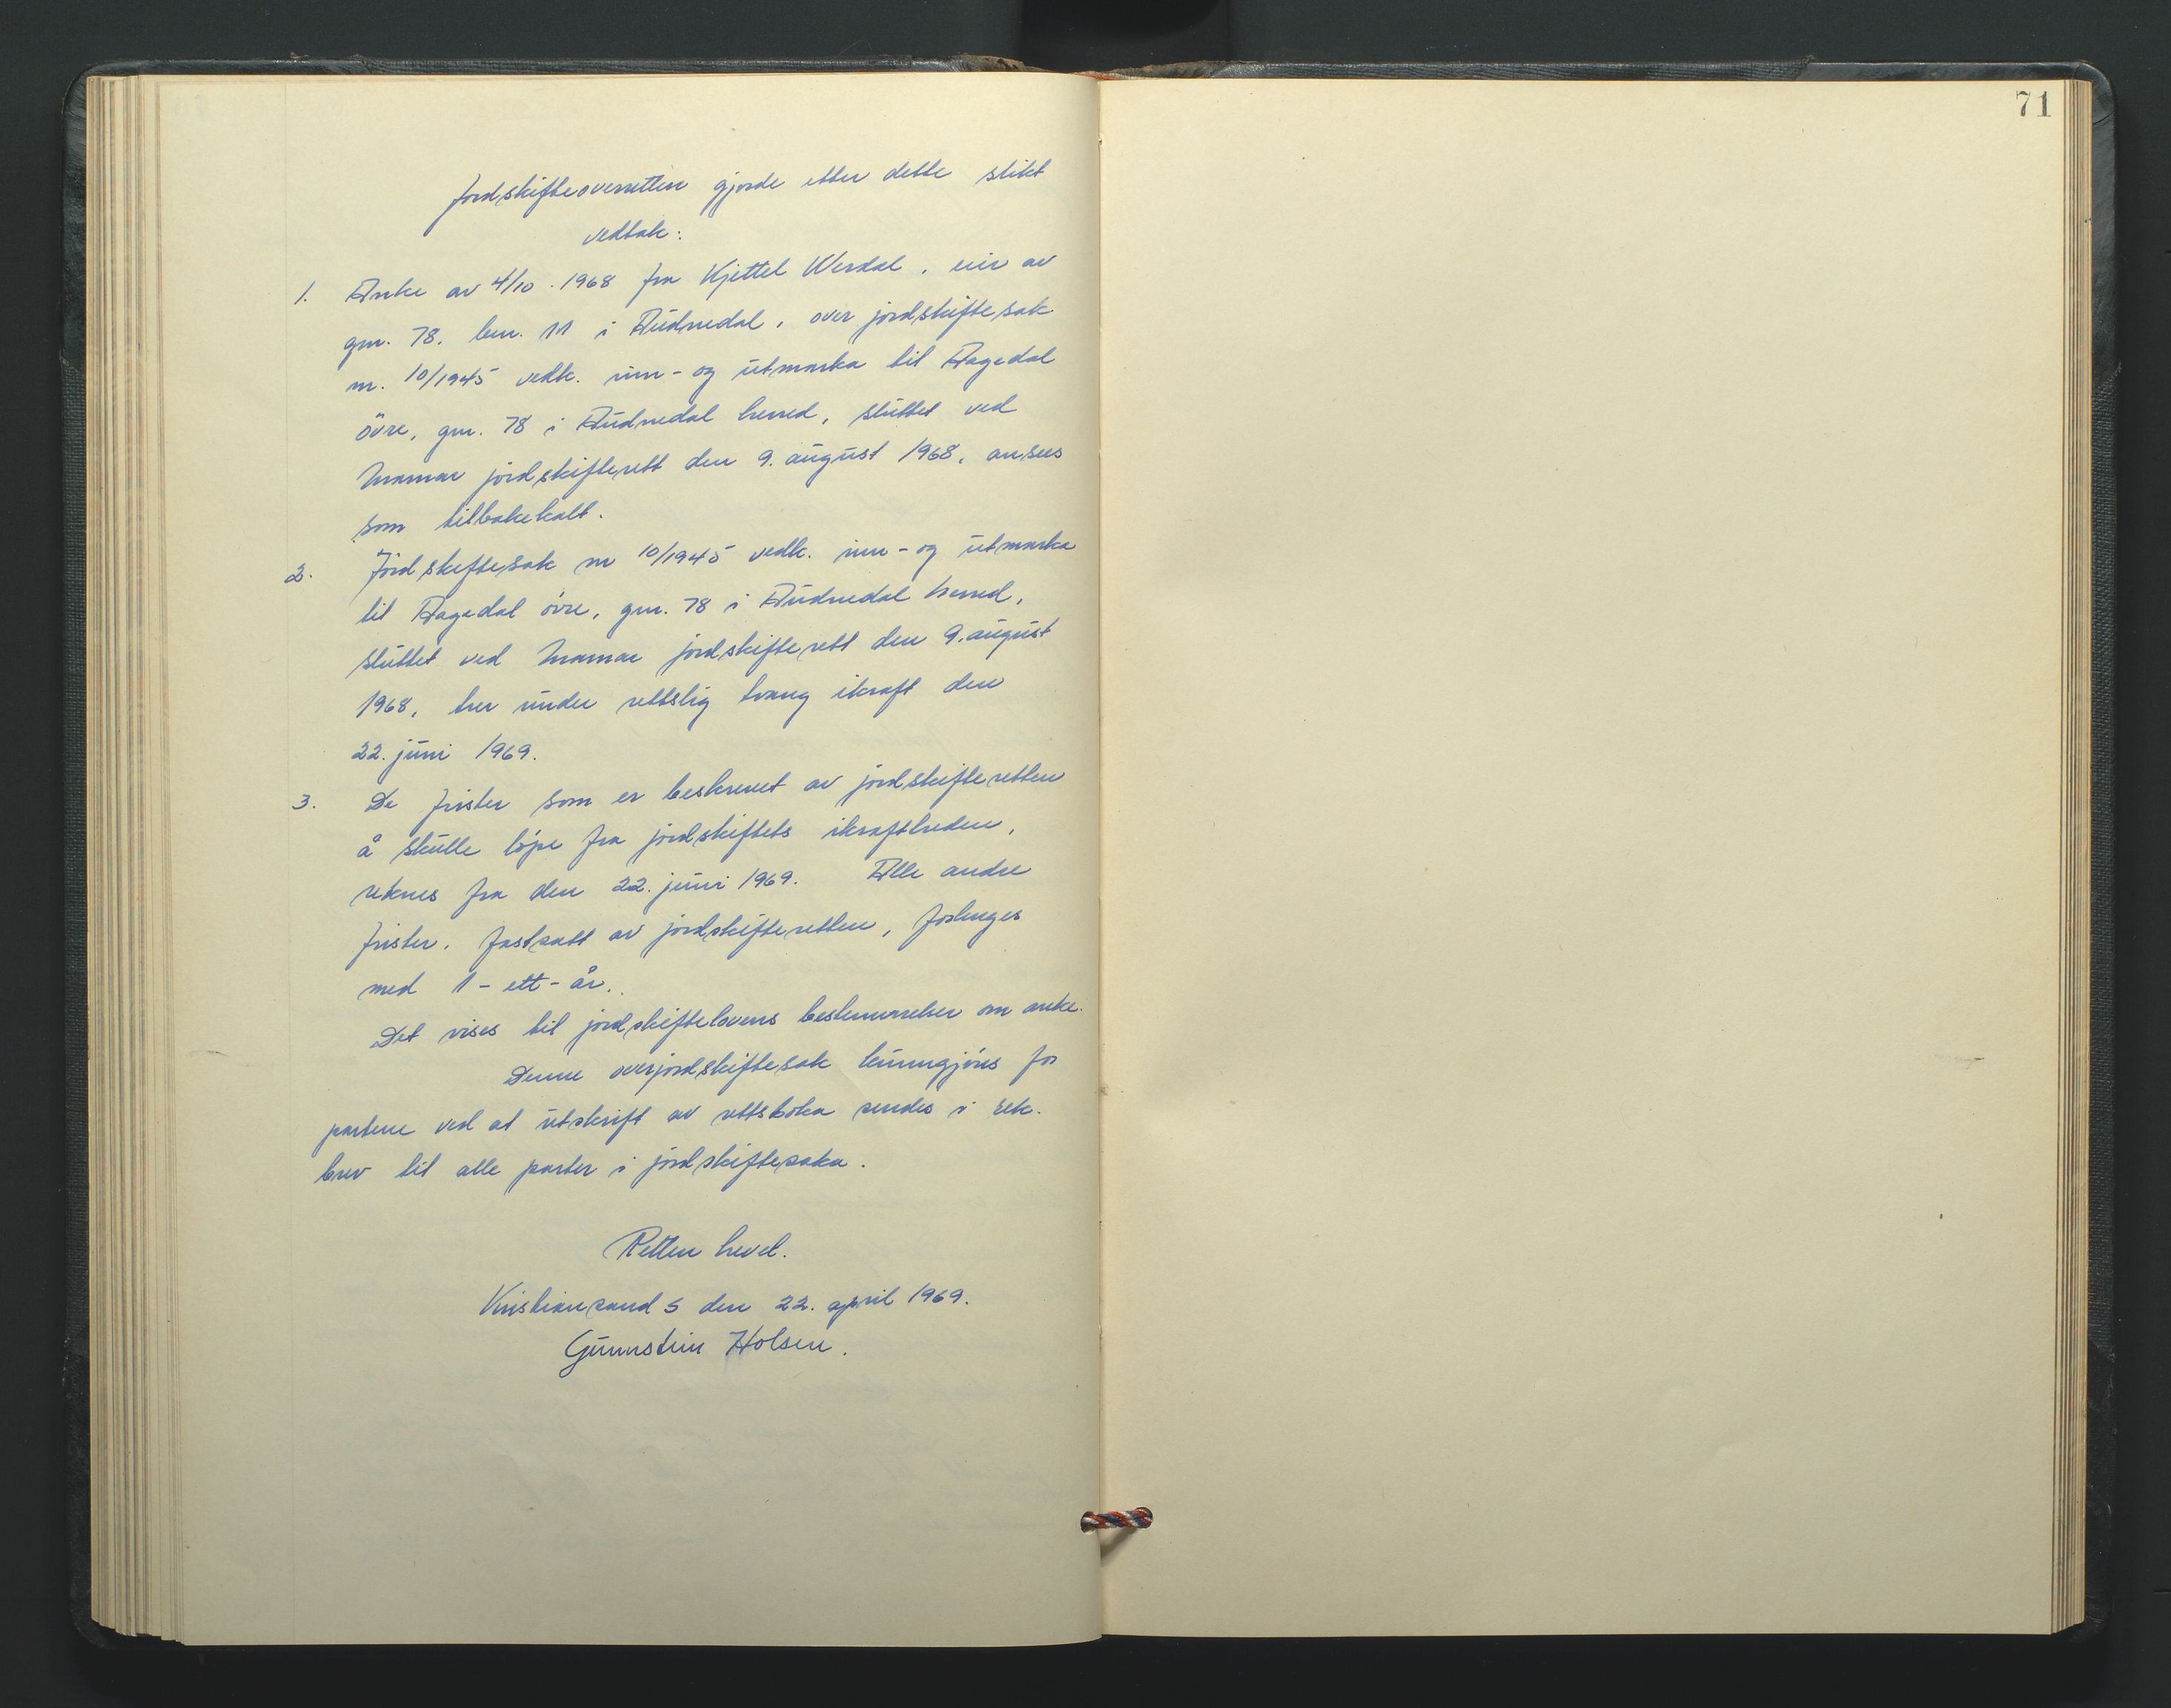 71
Jordskifteoverretten gjorde etter dette slikt
vedtak:
1. Anke av 4/10. 1968 fra Kjettel Werdal, eier av
gnr. 78, bnr. 11 i Audnedal, over jordskiftesak
nr. 10/1945 vedk. inn- og utmarka til Aagedal
övre, gnr. 78 i Audnedal herred, sluttet ved
Marnar jordskifterett den 9. august 1968, ansees
som tilbakekalt.
2. Jordskiftesak nr 10/1945 vedk. inn- og utmarka
til Aagedal övre, gnr. 78 i Audnedal herred,
sluttet ved Marnar jordskifterett den 9. august
1968, trer under rettslig tvang ikraft den
22. juni 1969.
3. De frister som er beskrevet av jordskifteretten
å skulle löpe fra jordskiftets ikrafttreden,
reknes fra den 22. juni 1969. Alle andre
frister, fastsatt av jordskifteretten, forlenges
med 1 - ett - år.
Det vises til jordskiftelovens bestemmelser om anke.
Denne overjordskiftesak kunngjöres for
partene ved at utskrift av rettsboka sendes i rek.
brev til alle parter i jordskiftesaka.
Retten hevet.
Kristiansand S den 22. april 1969.
Gunnstein Holsen.